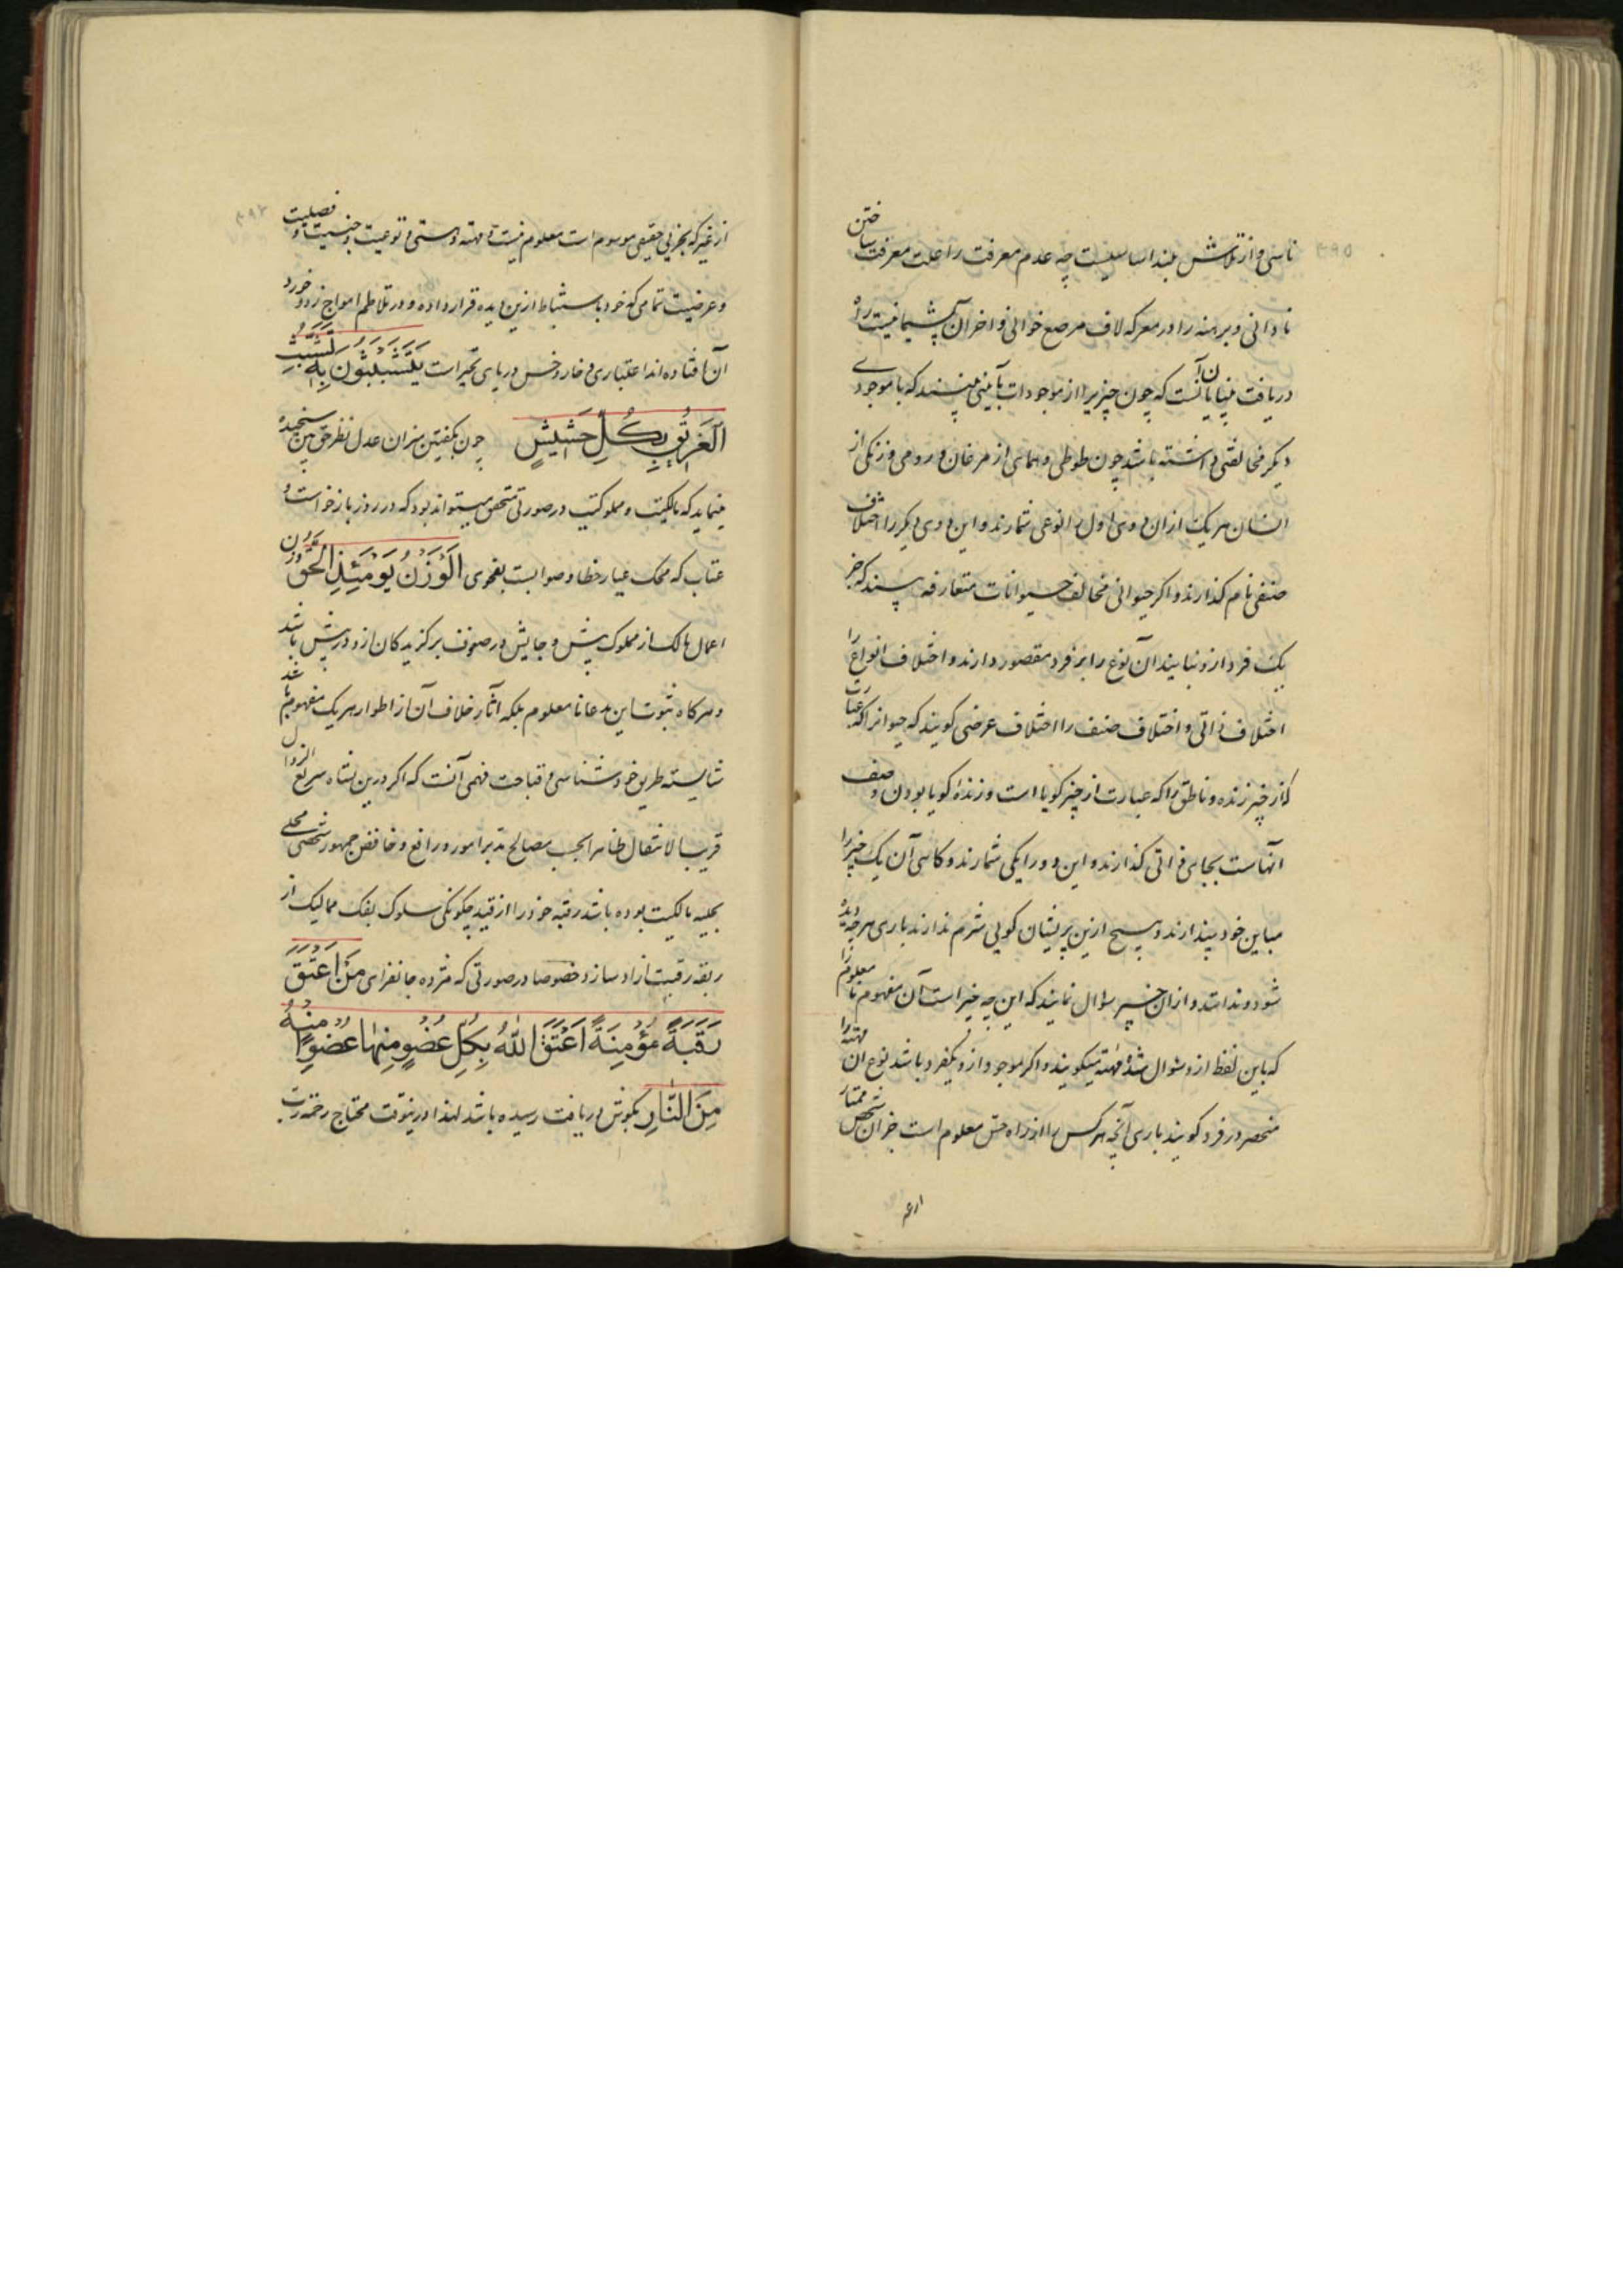 ۳۹۵
ناسی و از تلاش بلند اساسیست چه عدم معرفت را علت معرفت ساختن
نادانی و برهنه را در معرکه لاف مرصع خوانی و اخر آن پشیمانیست راه
دریافت بینایان آنست که چون چیزیرا از موجودات بآیینی می‌بینند که با موجودی
دیگر مخالفتی داشته باشد چون طوطی و همای از مرغان و رومی و زنگی از
انسان هر یک از ان دوی اول را نوعی شمارند و این دوی دیگر را اختلاف
صنفی نام گذارند و اگر حیوانی مخالف حیوانات متعارفه بینند که جز
یک فرد ازو نیابند آن نوع را بر فرد مقصور دارند و اختلاف انواع را
اختلاف ذاتی و اختلاف صنف را اختلاف عرضی گویند که حیوانرا که عبارت
از چیز زنده و ناطق را که عبارت از چیز گویا است و زنده گویا بودن وصف
انهاست بجای ذاتی گذارند و این دو را یکی شمارند و گاهی آن یک چیز را
مباین خود پندارند و هیچ ازین پریشان گویی شرم ندارند باری هر چه دیده
شود و ندانند و از ان چیز سؤال نمایند که این چه چیز است آن مفهوم نامعلوم را
که باین لفظ ازو سوال شده مهیته میگویند و اگر موجود ازو یکفرد باشد نوع ان مهیته را
منحصر در فرد گویند باری آنچه هر کس را از راه حس معلوم است جز ان شخص ممتاز
از غیر که بجزیی حقیقی موسوم است معلوم نیست و مهیته و هستی و نوعیت و جنسیت و فصلیت
و عرضیت تمامی که خود باستنباط ازین دیده قرار داده و در تلاطم امواج زد و خورد
آن افتاده اند اعتباری و خار و خس دریای تحیر است يَتَشَبَّثُونَ بِهِ تَشَبُّثَ
الْغَرِيقِ بِكُلِّ حَشِيشٍ چون بکفتین میزان عدل نظر حق بین سنجیده
مینماید که مالکیت و مملوکیت در صورتی متحقق میتواند بود که در روز بازخواست و
عتاب که محک عیار خطا و صوابست بفحوی الْوَزْنُ يَوْمَئِذٍ الْحَقُّ وزن
اعمال مالک از مملوک بیش و جایش در صفوف برگزیدگان ازو در پیش باشد
و هرگاه ثبوت این مدعا نامعلوم بلکه آثار خلاف آن از اطوار هر یک مفهوم باشد
شایسته طریق خود شناسی و قباحت فهمی آنست که اگر درین نشاه سریع الزوال
قریب الانتقال ظاهرا بحسب مصالح تدبر امور و رافع و خافض جمهور شخصی محلی
بحلیه مالکیت بوده باشد رقبه خود را از قید چگونگی سلوک بفک ممالیک از
ربقه رقیت ازاد سازد خصوصا در صورتی که مژده جانفزای مَنْ اَعْتَقَ
رَقَبَةً مُؤْمِنَةً اَعْتَقَ اللّٰهُ بِكُلِّ عُضْوٍ مِنْهَا عُضْوًا مِنْهُ
مِنَ النَّارِ بگوش دریافت رسیده باشد لهذا درینوقت محتاج رحمة رب